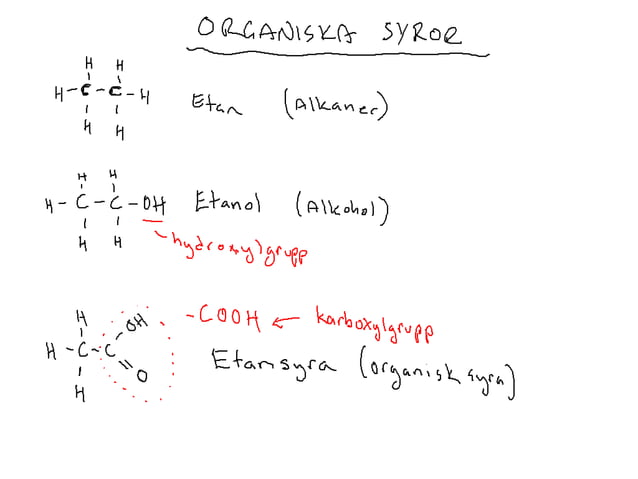 ORGANISKA SYROR
H H
H-C-C-H Etan (Alkaner)
H H
H H
H-C-C-OH Etanol (Alkohol)
H H
hydroxylgrupp
-COOH ← karboxylgrupp
H OH
H-C-C Etansyra (organisk syra)
O
H